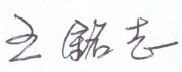 王銘志